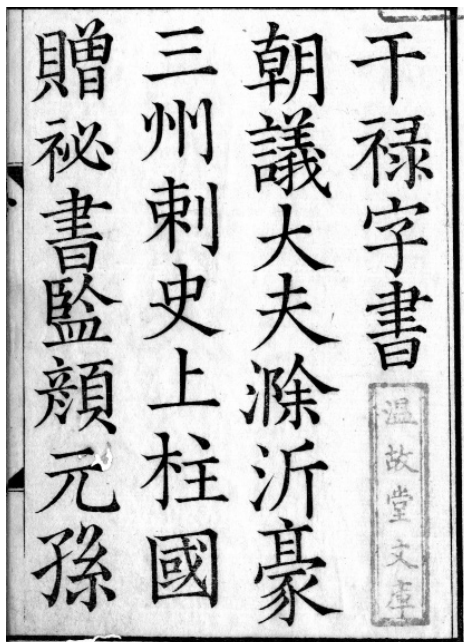 干禄字書
温故堂文庫
朝議大夫滁沂豪
三州刺史上柱國
贈祕書監顔元孫